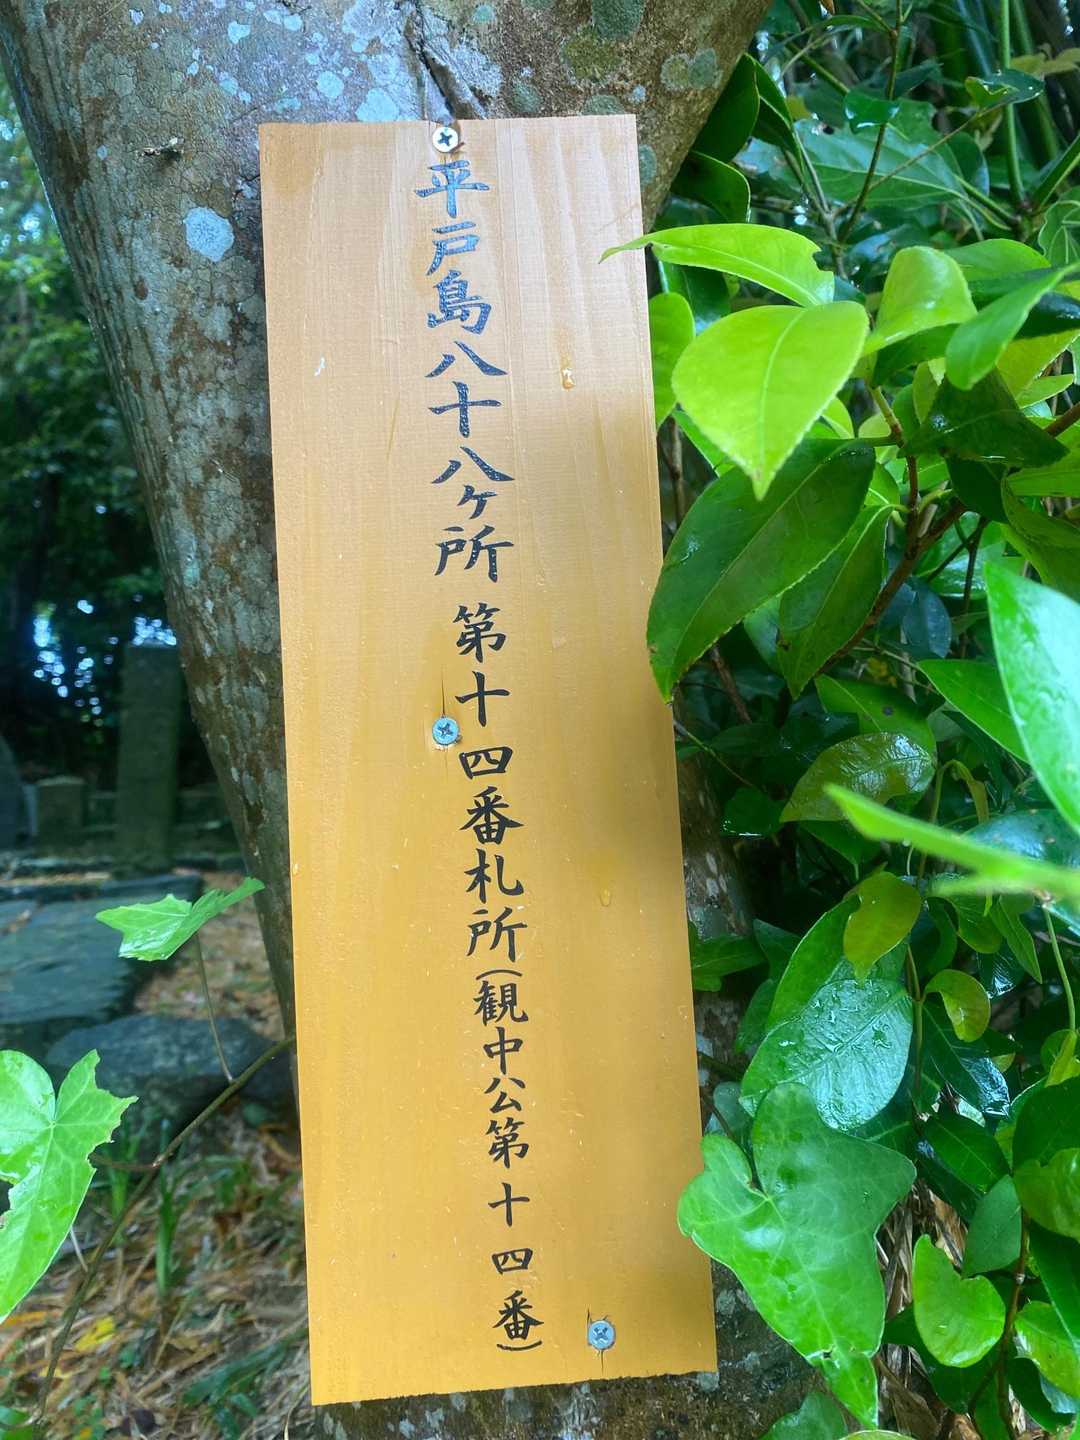 平戸島八十八ヶ所 第十四番札所(観中公第十四番)